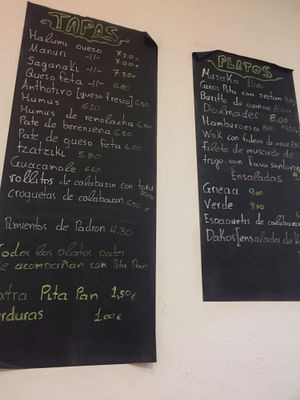 TAPAS
Halumi queso 7.20€
Manuri -11- 7.00€
Saganaki -11- 7.30€
Queso feta -11- 6.80
Anthotiro [queso fresco] 6.50
Humus 6.20
Humus de remolacha 6.50
Pate de berenjena 6.80
Pate de queso feta 6.00
Tzatziki 5.80
Guacamole 6.60
rollitos de calabazin con tofu
croquetas de calabazon 6.50
Pimientos de Padron 4.30
Todos los platos
se acompañan con Pita Pan
Extra Pita Pan 1,50€
Verduras 1.00€
PLATOS
Musaka
Guros Pita con seitan
Burrito de quinoa
Dolmades 8.90
Hamburguesa
Wok con fideos de arroz
Filete de musculo de
trigo con Fava
Ensaladas
Griega 9.00
Verde 8.90
Espaguetis de calabazin
Dakos [ensalada de